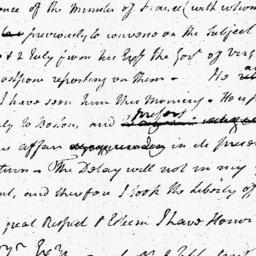 ence of the Minister of France (with whom
previously to converse on the Subject
& 2 July from his Exy the Gov. of Virg
postpone reporting on them - He
I have seen him this Morning - He is
ly to Boston, and prefers
is affair in its prese
turn - The Delay will not in my
nt, and therefore I took the Liberty of
great Respect & Esteem I have Honor